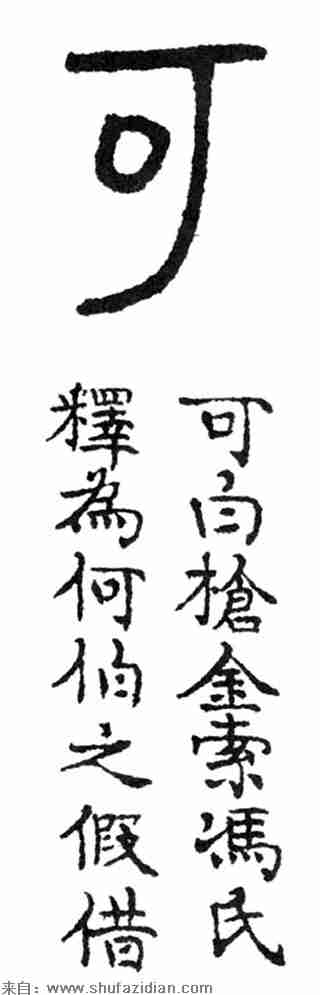 可
可白槍金索馮氏
釋為何伯之假借
来自：www.shufazidian.com